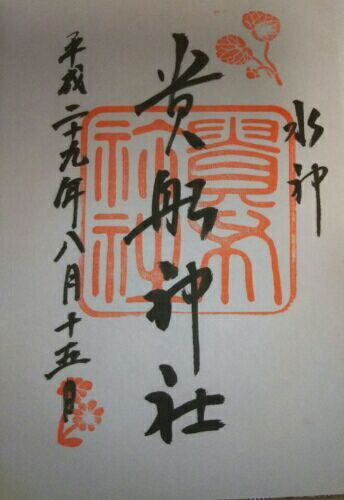 水神
貴船神社
平成二十九年八月十五日